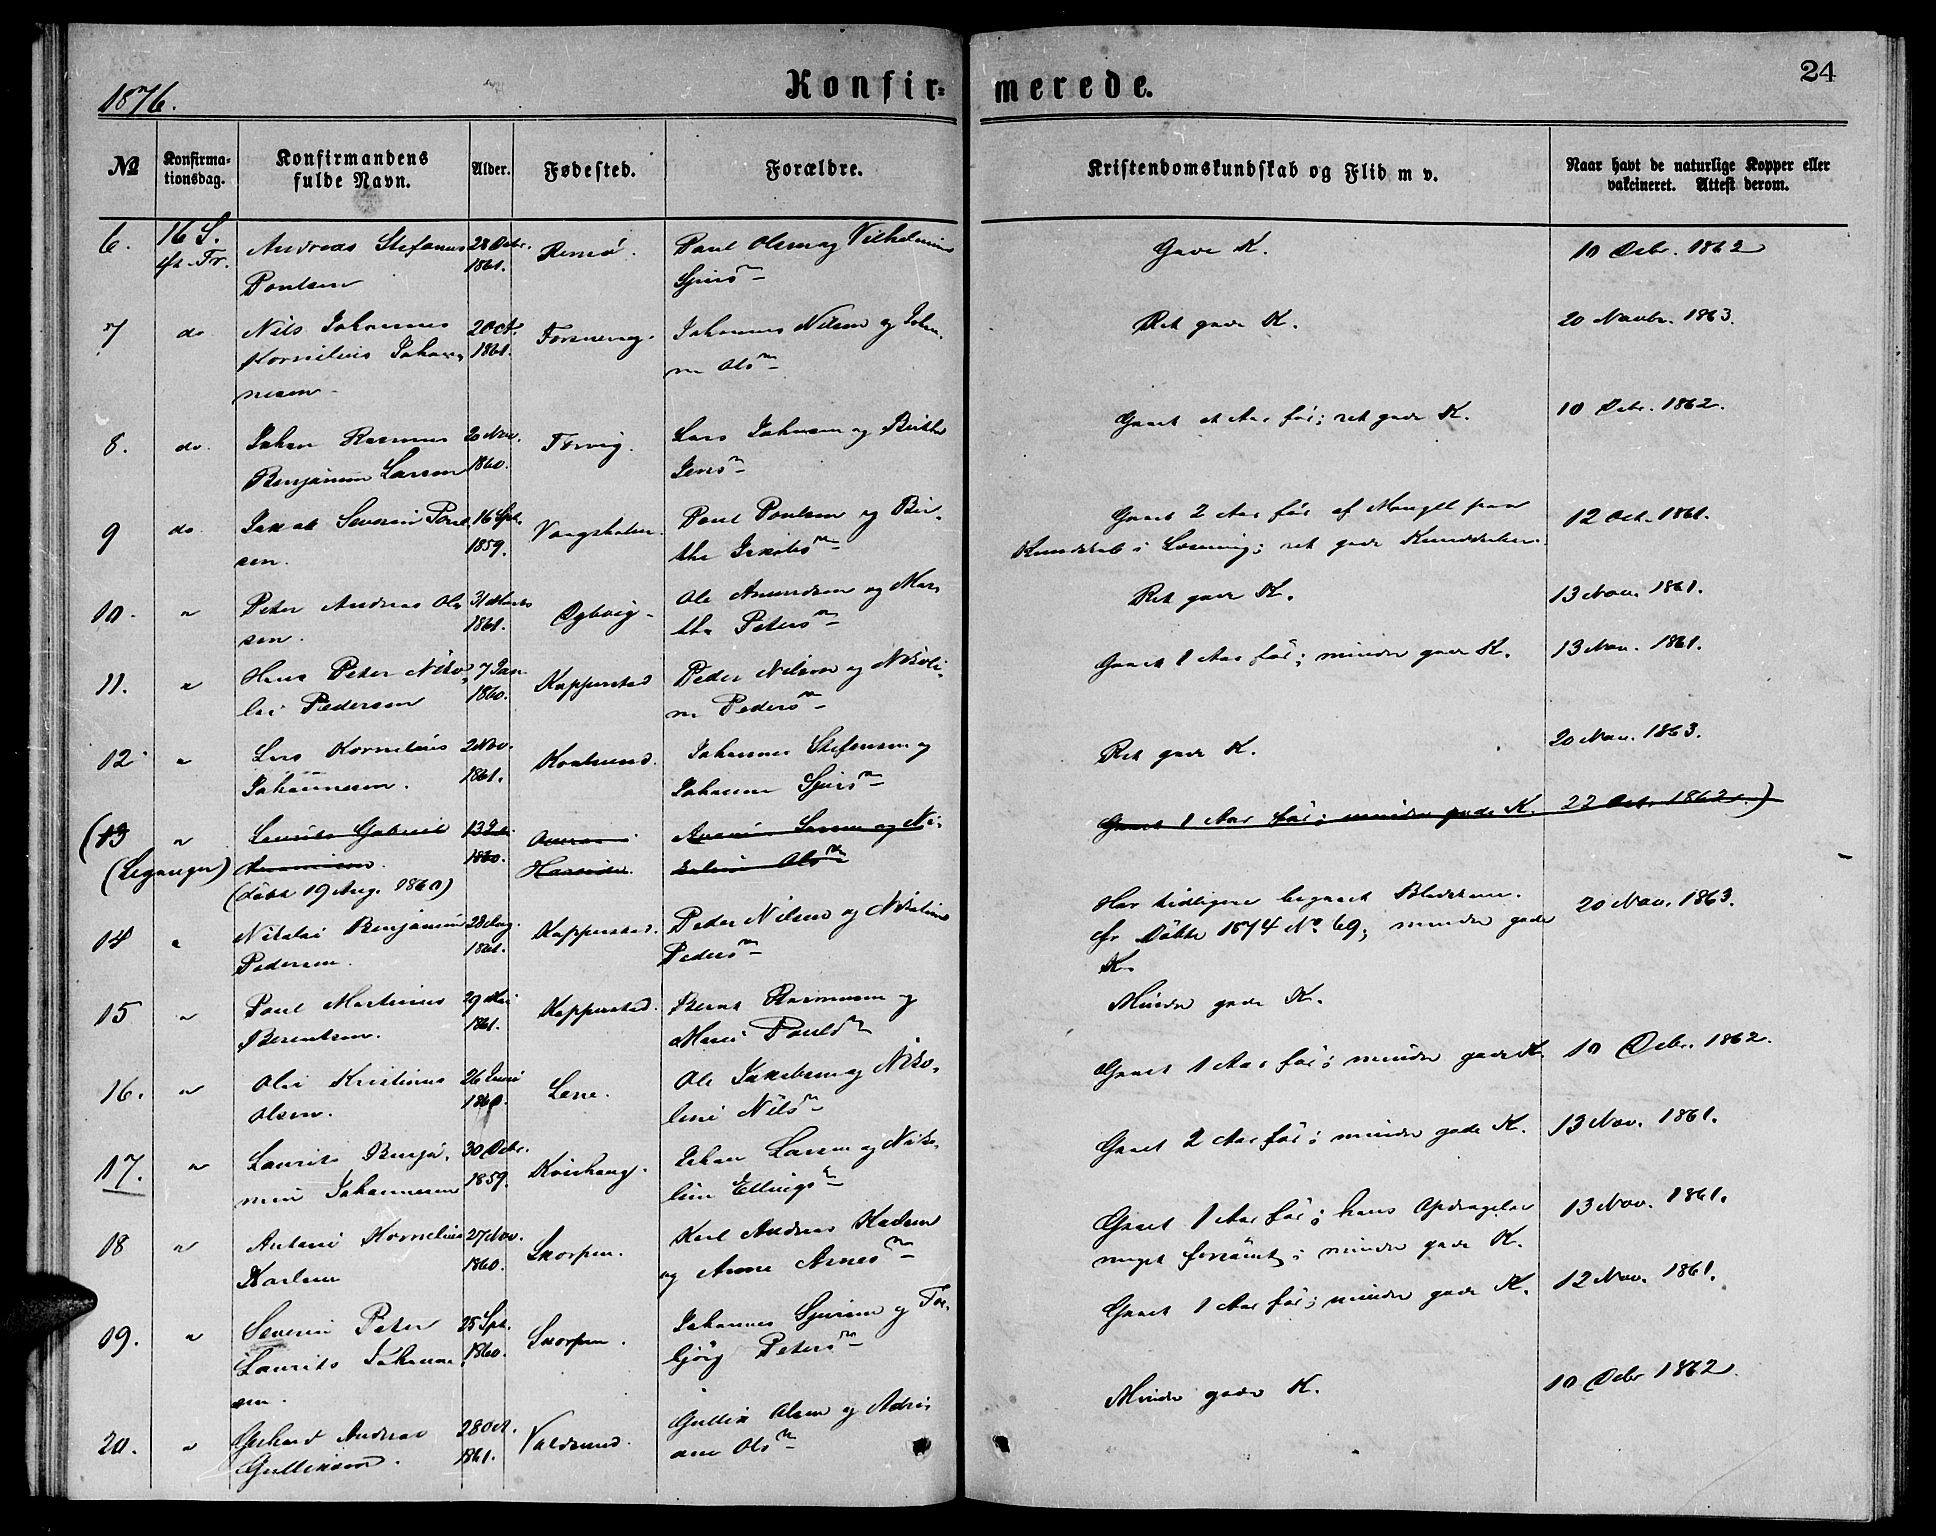 1876.
Konfir=
merede.
24
No
Konfirma-
tionsdag.
Konfirmandens
fulde Navn.
Alder.
Fødested.
Forældre.
Kristendomskundskab og Flid m v.
Naar havt de naturlige Kopper eller
vakcineret. Attest derom.
6. 16 S. Andreas Stefanus 28 Debr. Remø. Poul Olsen og Vilhelmine Gode K. 10 Debr. 1862
eft. Tr. Poulsen 1861. Sjurs
7 do Nils Johannes 20 Johannes Nilsen og Johan, Ret gode K. 20 Novbr. 1863.
Kornelius Johan, 1861. ne Ols
nesen
8. do. Johan Rasmus Nov. Torvig. Lars Johnsen og Birthe Gaaet et Aar før; ret gode K. 10 Debr. 1862.
Benjamin Larsen 1860. Jens
9 do. Jakob Severin Poul, 16 Spt. Vaagsholm Poul Poulsen og Bir, Gaaet 2 Aar før af Mangel paa 12 Oct. 1861.
sen. 1859. the Jakobs Kundskab i Læsning; ret gode Kundskaber.
10. " Peter Andreas Ol, 31 Marts Ole Amundsen og Mar, Ret gode K. 13 Nov. 1861.
sen. 1861. the Peters
11. " Hans Peter Niko, 7 Jan Kapperstad Peder Nilsen og Nikoli, Gaaet 1 Aar før; mindre gode K. 13 Nov. 1861.
lai Pedersen 1860. ne Peders
12 " Lars Kornelius 2 Nov. Johannes Stefansen og Ret gode K. 20 Nov. 1863.
Johannesen. 1861. Johanne Sjurs
(13 " Laurits Gabriel 13 Larsen og Ni, Gaaet 1 Aar før; mindre gode K. 22 Oct. 1862.)
(Leganger) 1860. Ols
(døbt 19 Aug. 1860)
14 " Nikolai Benjamin 28 Aug. Kapperstad. Peder Nilsen og Nikoline Har tidligere begaaet Blodskam. 20 Nov. 1863.
Pedersen. 1861. Peders cfr Døbte 1874 No 69; mindre gode
K.
15 " Poul Martinus 29 Mai Kapperstad. Bernt Rasmussen og Mindre gode K.
Berentsen. 1861. Marie Pouls
16. " Olai Kristinus 26 Juni Lene. Ole Jakobsen og Niko, Gaaet 1 Aar før; mindre gode K. 10 Debr. 1862.
Olsen. 1860. line Nils
17. " Laurits Benja, 30 Debr. Kvishaug. Johan Larsen og Niko, Gaaet 2 Aar før; mindre gode K. 13 Nov. 1861.
min Johannesen 1859. line Ellings
18 " Antoni Kornelius 27 Nov. Skorpen. Karl Andreas Karlsen Gaaet 1 Aar før; hans Opdragelse 13 Nov. 1861.
Karlsen 1860. og Anne Arnes meget forsømt; mindre gode K.
19. " Severin Peter 25 Spt. Skorpen. Johannes Sjursen og Tor, Gaaet 1 Aar før; mindre gode K. 12 Nov. 1861.
Laurits Johanne, 1860. bjørg Peters
sen.
20. " Gerhard Andreas 28 Oct. Voldsund. Gullik Olsen og Adri, Mindre gode K. 10 Debr 1862.
Gulliksen. 1861. ane Ols